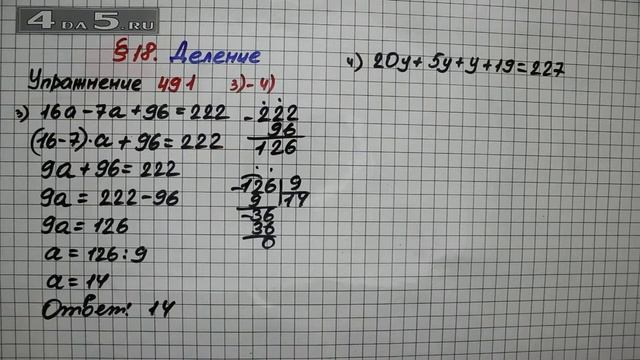 4 DA 5.RU
§ 18. Деление
Упражнение 491 3)-4)
3) 16a-7a+96=222
(16-7)·a+96=222
9a+96=222
9a=222-96
9a=126
a=126:9
a=14
Ответ: 14
-222
96
126
-126 9
9 14
-36
36
0
4) 20y+5y+y+19=227